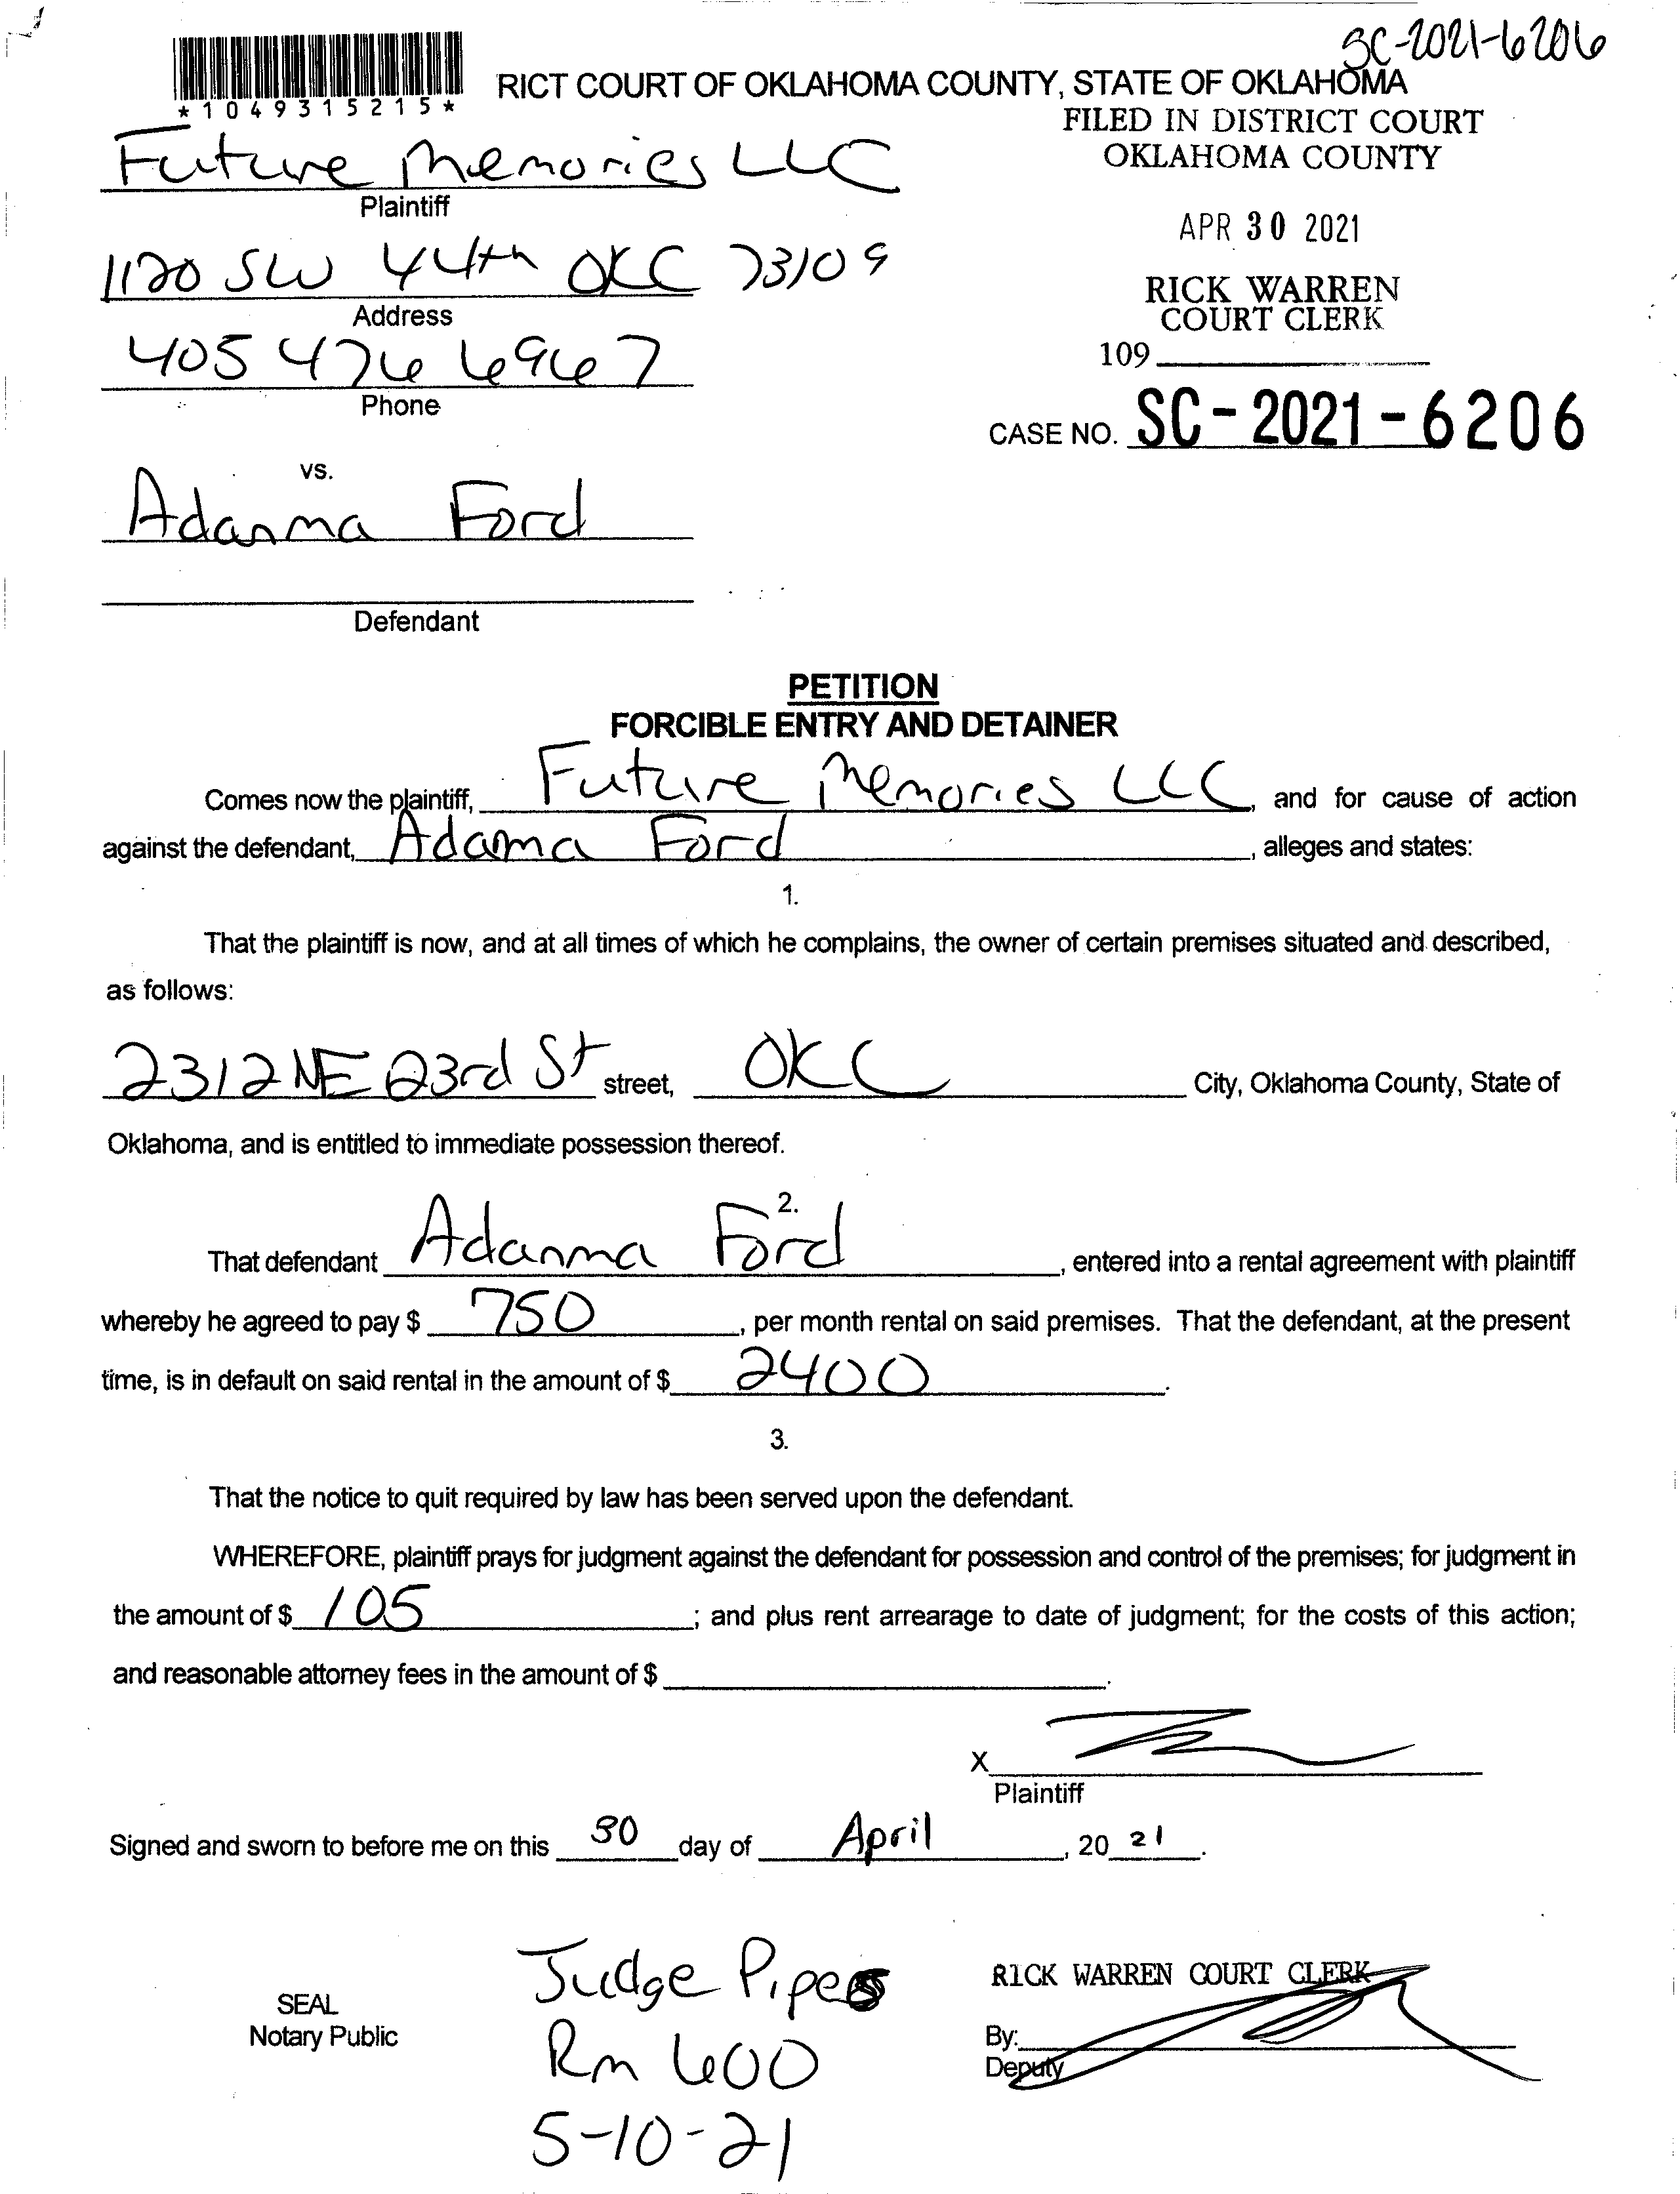 SC-2021-6206
*1049315215*
RICT COURT OF OKLAHOMA COUNTY, STATE OF OKLAHOMA
FILED IN DISTRICT COURT
OKLAHOMA COUNTY
Future Memories LLC
Plaintiff
APR 30 2021
1120 SW 44th OKC 73109
Address
RICK WARREN
COURT CLERK
405 476 6967
Phone
109
CASE NO. SC-2021-6206
vs.
Adanma Ford
Defendant
PETITION
FORCIBLE ENTRY AND DETAINER
Comes now the plaintiff, Future Memories LLC, and for cause of action
against the defendant, Adama Ford, alleges and states:
1.
That the plaintiff is now, and at all times of which he complains, the owner of certain premises situated and described,
as follows:
2312 NE 23rd St street, OKC City, Oklahoma County, State of
Oklahoma, and is entitled to immediate possession thereof.
2.
That defendant Adanma Ford, entered into a rental agreement with plaintiff
whereby he agreed to pay $ 750, per month rental on said premises. That the defendant, at the present
time, is in default on said rental in the amount of $ 2400.
3.
That the notice to quit required by law has been served upon the defendant.
WHEREFORE, plaintiff prays for judgment against the defendant for possession and control of the premises; for judgment in
the amount of $ 105; and plus rent arrearage to date of judgment; for the costs of this action;
and reasonable attorney fees in the amount of $ .
X
Plaintiff
Signed and sworn to before me on this 30 day of April, 20 21.
Judge Pipes
RICK WARREN COURT CLERK
SEAL
Notary Public
Rm 600
By:
Deputy
5-10-21